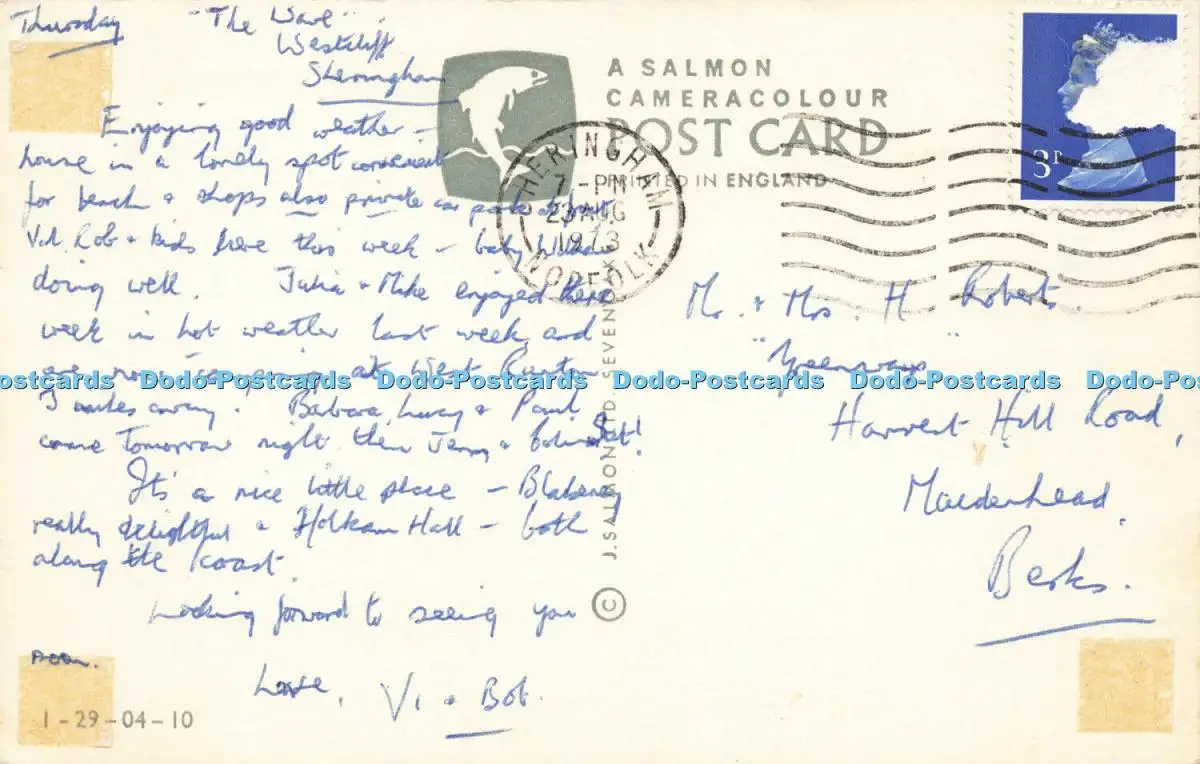 Thursday
"The
Westcliff
Sheringham
Enjoying good weather –
house in a lovely spot convenient
for beach & shops also private car park
Val, Rob & kids here this week – baby
doing well. Julia & Mike enjoyed there
week in hot weather last week, and
are now at West Runton
miles away. Barbara, Lucy & Paul
come tomorrow night then Jenny &
It's a nice little place – Blakeney
really delightful & Holkam Hall – both
along the coast
Looking forward to seeing you
soon.
Love, Vi & Bob.
1-29-04-10
A SALMON
CAMERACOLOUR
POST CARD
PRINTED IN ENGLAND
© J. SALMON LTD. SEVENOAKS
SHERINGHAM
7-PM
23 AUG
1973
NORFOLK
3P
Mr. & Mrs. H Roberts.
"Greenways"
Harvest Hill Road,
Maidenhead,
Berks.
Dodo-Postcards Dodo-Postcards Dodo-Postcards Dodo-Postcards Dodo-Postcards Dodo-Postcards